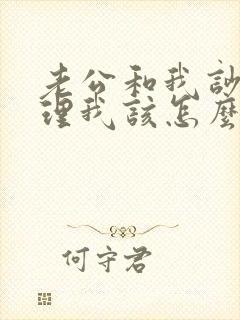 老公和我訬
理我該怎麼
何守君